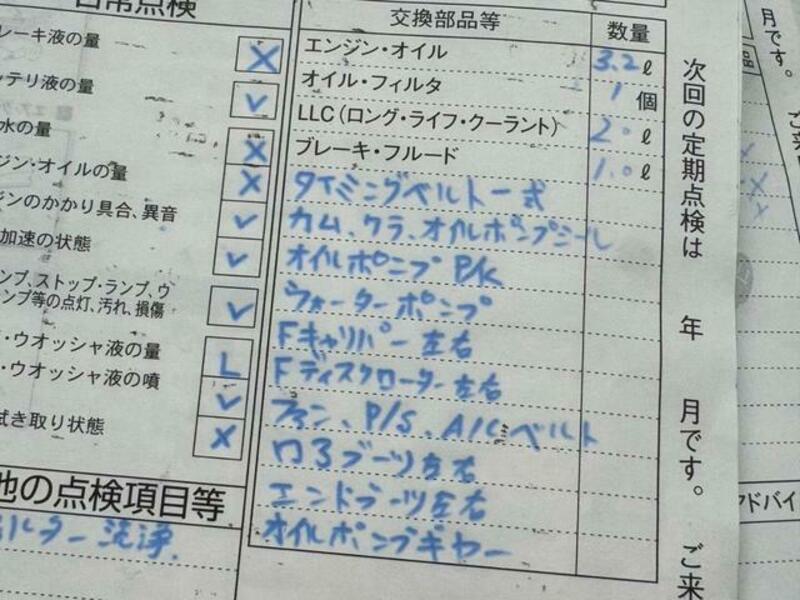 日常点検
レーキ液の量
ッテリ液の量
水の量
ジン・オイルの量
ジンのかかり具合、異音
加速の状態
ンプ、ストップ・ランプ、ウ
ンプ等の点灯、汚れ、損傷
・ウオッシャ液の量
・ウオッシャ液の噴
拭き取り状態
他の点検項目等
ルター洗浄
交換部品等 数量
エンジン・オイル 3.2ℓ
オイル・フィルタ 1個
LLC(ロング・ライフ・クーラント) 2.0ℓ
ブレーキ・フルード 1.0ℓ
タイミングベルト一式
カム、クラ、オイルポンプシール
オイルポンプ P/K
ウォーターポンプ
Fキャリパー左右
Fディスクローター左右
ファン、P/S、A/Cベルト
ロアブーツ左右
エンドブーツ左右
オイルポンプギヤー
次回の定期点検は 年 月です。ご来
月です。ご来
アドバイ